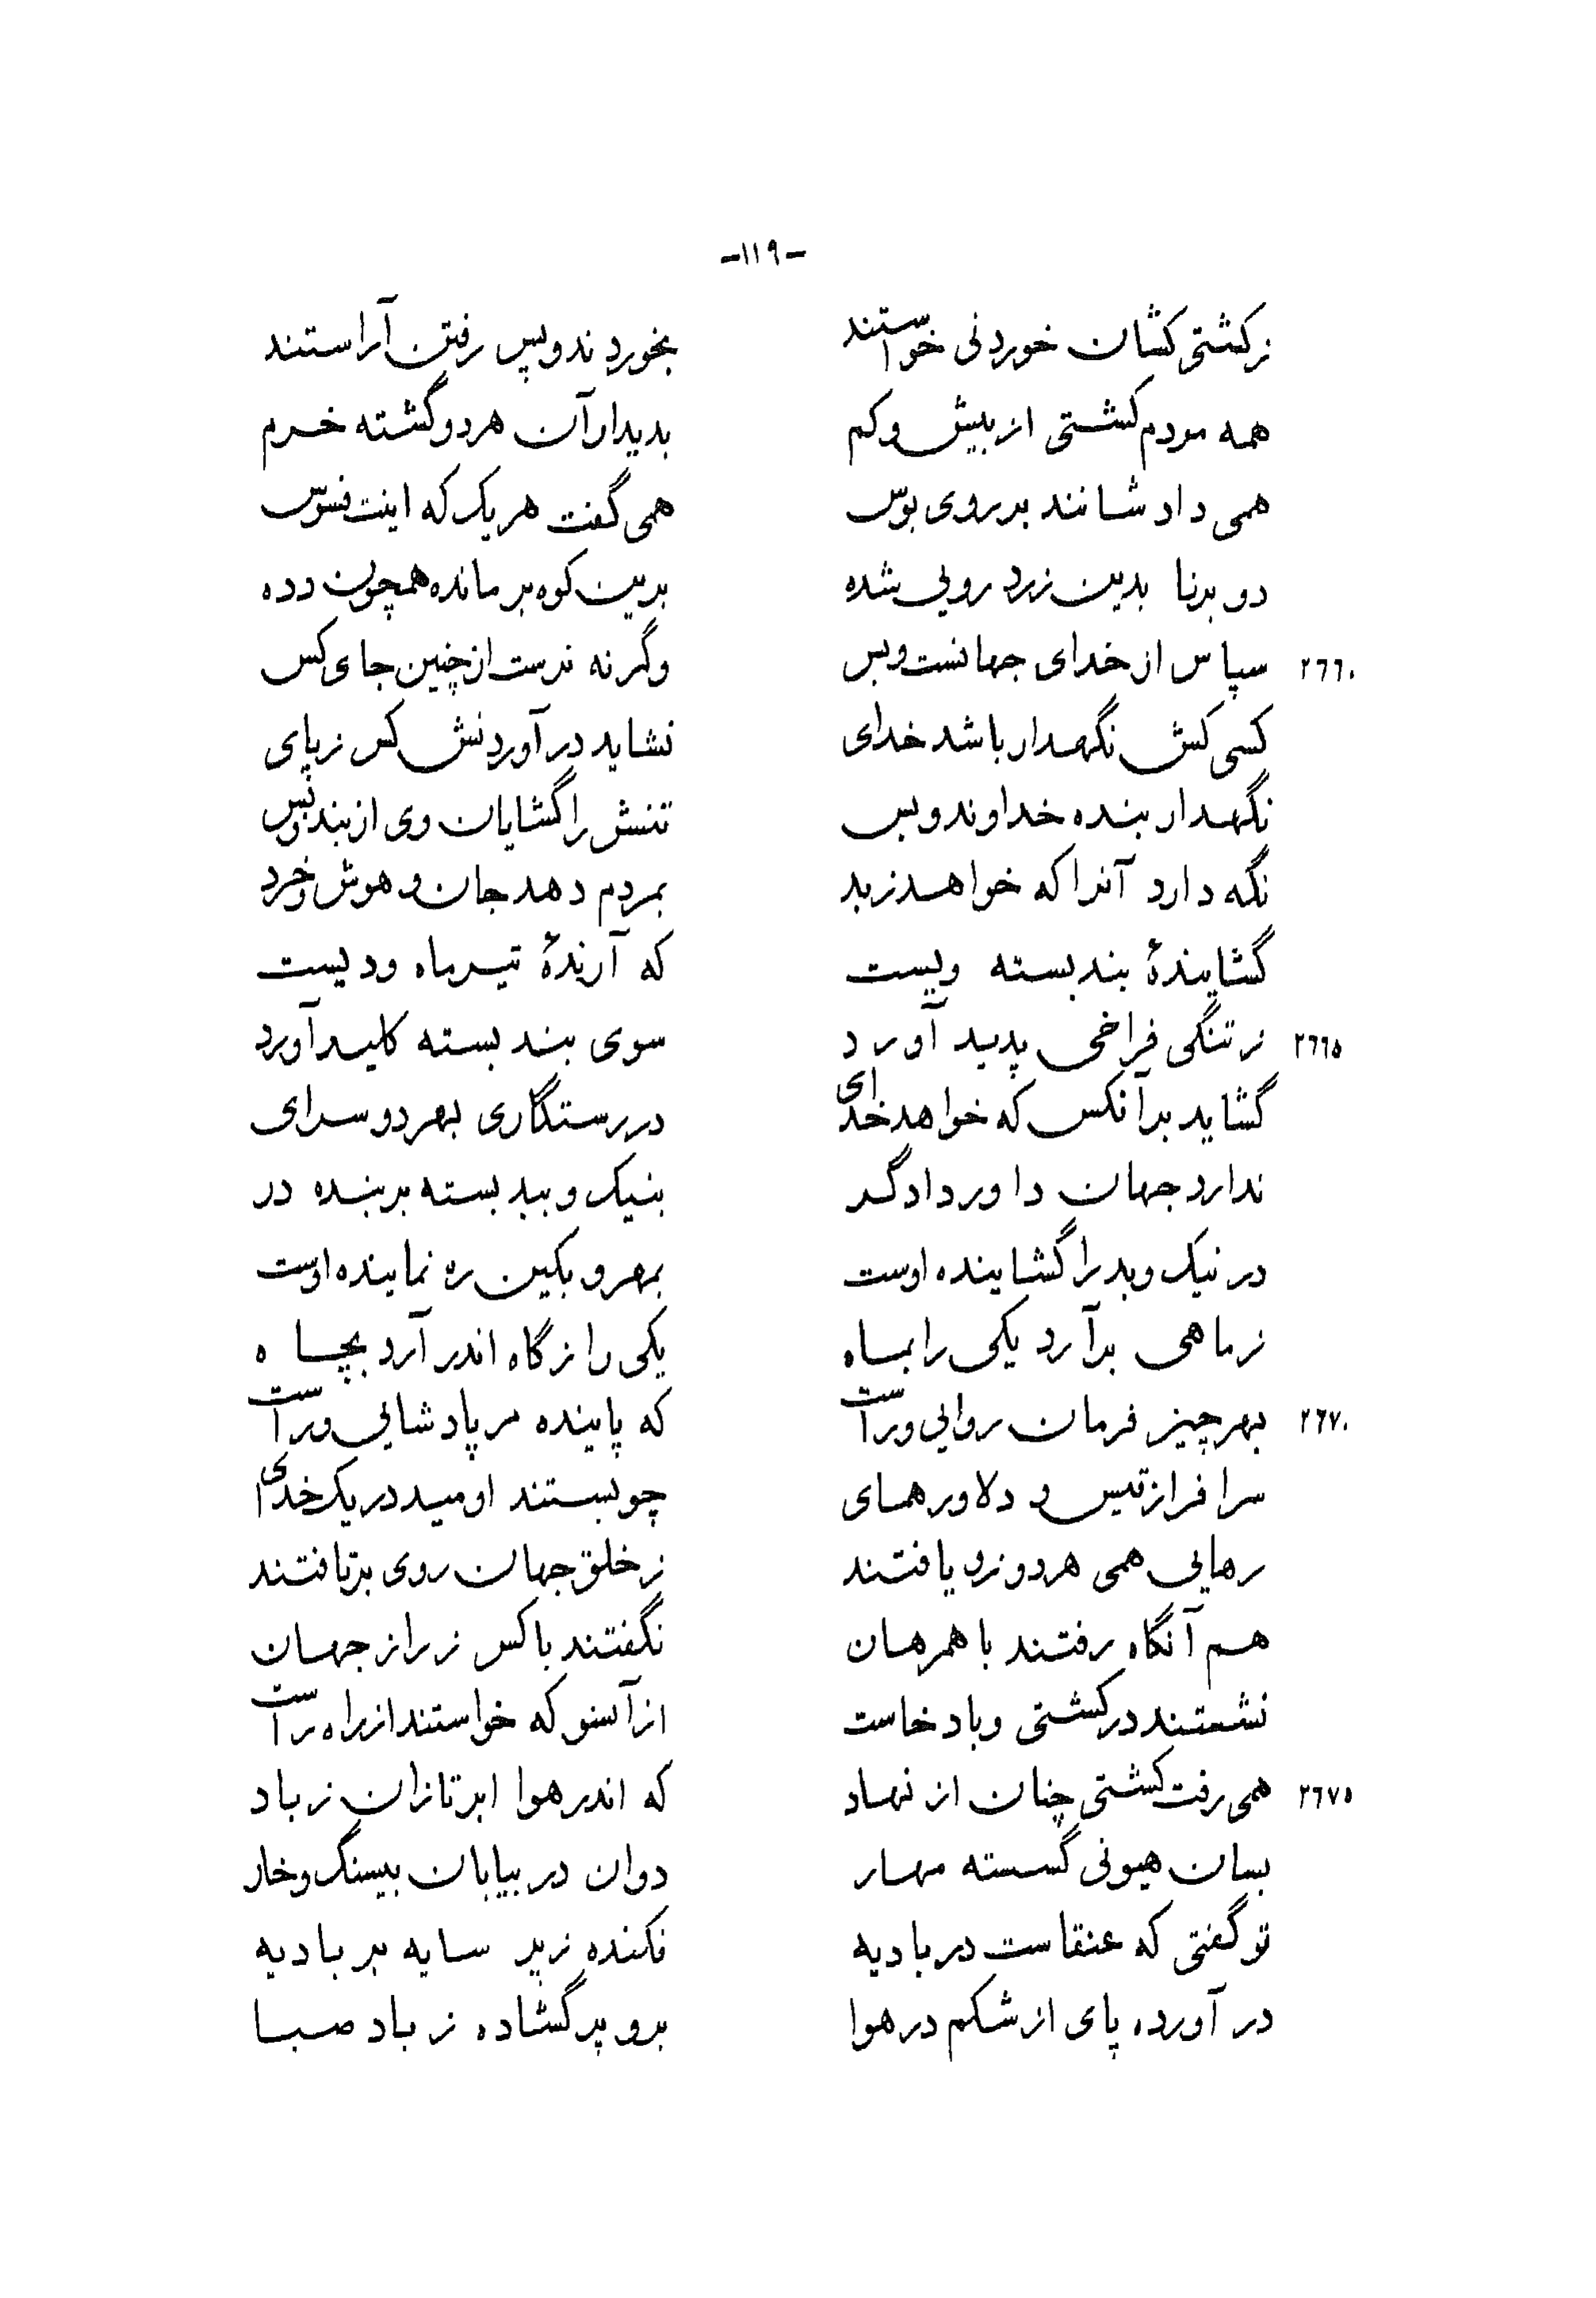 -۱۱۹-
زکشتی کشان خوردنی خواستند بخوردند و پس رفتن آراستند
همه مردم کشتی از بیش و کم بدیدار آن هر دو گشته خرم
همی داد شانند بر روی بوس همی گفت هر یک که اینت فسوس
دو برنا بدین زرد رویی شده برین کوه بر مانده همچون دده
۲۶۶۰ سپاس از خدای جهانست و بس وگرنه نرست از چنین جای کس
کسی کش نگهدار باشد خدای نشاید در آوردنش کس ز پای
نگهدار بنده خداوند و بس تنش را گشایان وی از بند و بس
نگه دارد آنرا که خواهد ز بد بمردم دهد جان و هوش و خرد
گشایندهٔ بند بسته ویست که آرندهٔ تیر ماه و دیست
۲۶۶۵ ز تنگی فراخی پدید آورد سوی بند بسته کلید آورد
گشاید بر آنکس که خواهد خدای در رستگاری بهر دو سرای
ندارد جهان داور دادگر بنیک و ببد بسته بر بنده در
در نیک و بد را گشاینده اوست بمهر و بکین ره نماینده اوست
ز ماهی بر آرد یکی را بماه یکی را ز گاه اندر آرد بچاه
۲۶۷۰ بهر چیز فرمان روایی وراست که پاینده مر پادشایی وراست
سرافراز قیس و دلاور همای چو بستند اومید در یک خدای
رهایی همی هر دو زو یافتند ز خلق جهان روی برتافتند
هم آنگاه رفتند با همرهان نگفتند با کس ز راز جهان
نشستند در کشتی و باد خاست از آنسو که خواستند از راه راست
۲۶۷۵ همی رفت کشتی چنان از نهاد که اندر هوا ابر تازان ز باد
بسان هیونی گسسته مهار دوان در بیابان بیسنگ و خار
تو گفتی که عنقاست در بادیه فکنده ز پر سایه بر بادیه
در آورده پای از شکم در هوا برو پر گشاده ز باد صبا